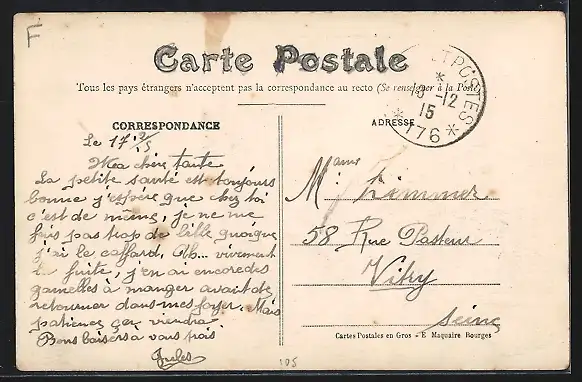 F
Carte Postale
Tous les pays étrangers n'acceptent pas la correspondance au recto (Se renseigner à la Poste
POSTES
-12
15
* 176 *
CORRESPONDANCE
ADRESSE
Le 17
Ma chère tante
La petite santé est toujours
bonne j'espère que chez toi
c'est de même, je ne me
fais pas trop de bile quoique
j'ai le caffard. Ah... vivement
la fuite, j'en ai encore des
gamelles à manger avant de
retourner dans mes foyer. Mais
patience ça viendra
Bons baisers a vous trois
Jules
Mame Zimmer
58 Rue Pasteur
Vitry
Seine
Cartes Postales en Gros - E Maquaire Bourges
105